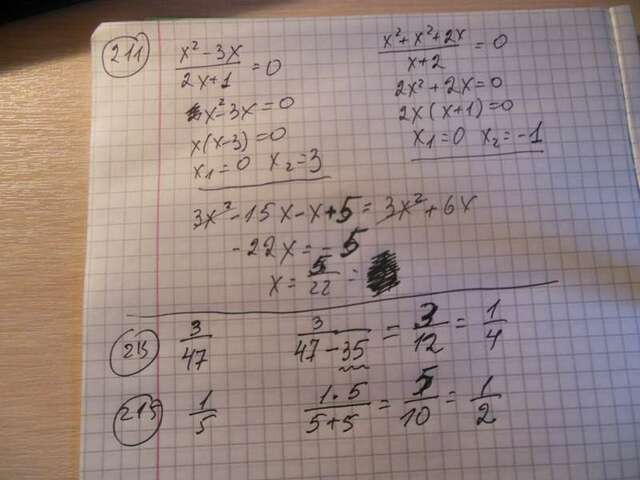 211
x² - 3x / 2x+1 = 0
x² - 3x = 0
x(x-3) = 0
x₁ = 0 x₂ = 3
x² + x² + 2x / x+2 = 0
2x² + 2x = 0
2x(x+1) = 0
x₁ = 0 x₂ = -1
3x² - 15x - x + 5 = 3x² + 6x
-22x = -5
x = 5/22 =
3/47 3/(47-35) = 3/12 = 1/4
215 1/5 1·5/(5+5) = 5/10 = 1/2